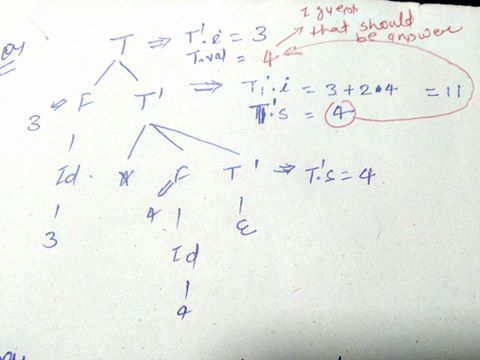 I guess
that should
be answer
T ⇒ T'.i = 3
T.val = 4
3 ⇐ F T' ⇒ T₁'.i = 3+2*4 = 11
T'.s = 4
Id * F T' ⇒ T'.s = 4
3 4 ε
Id
4